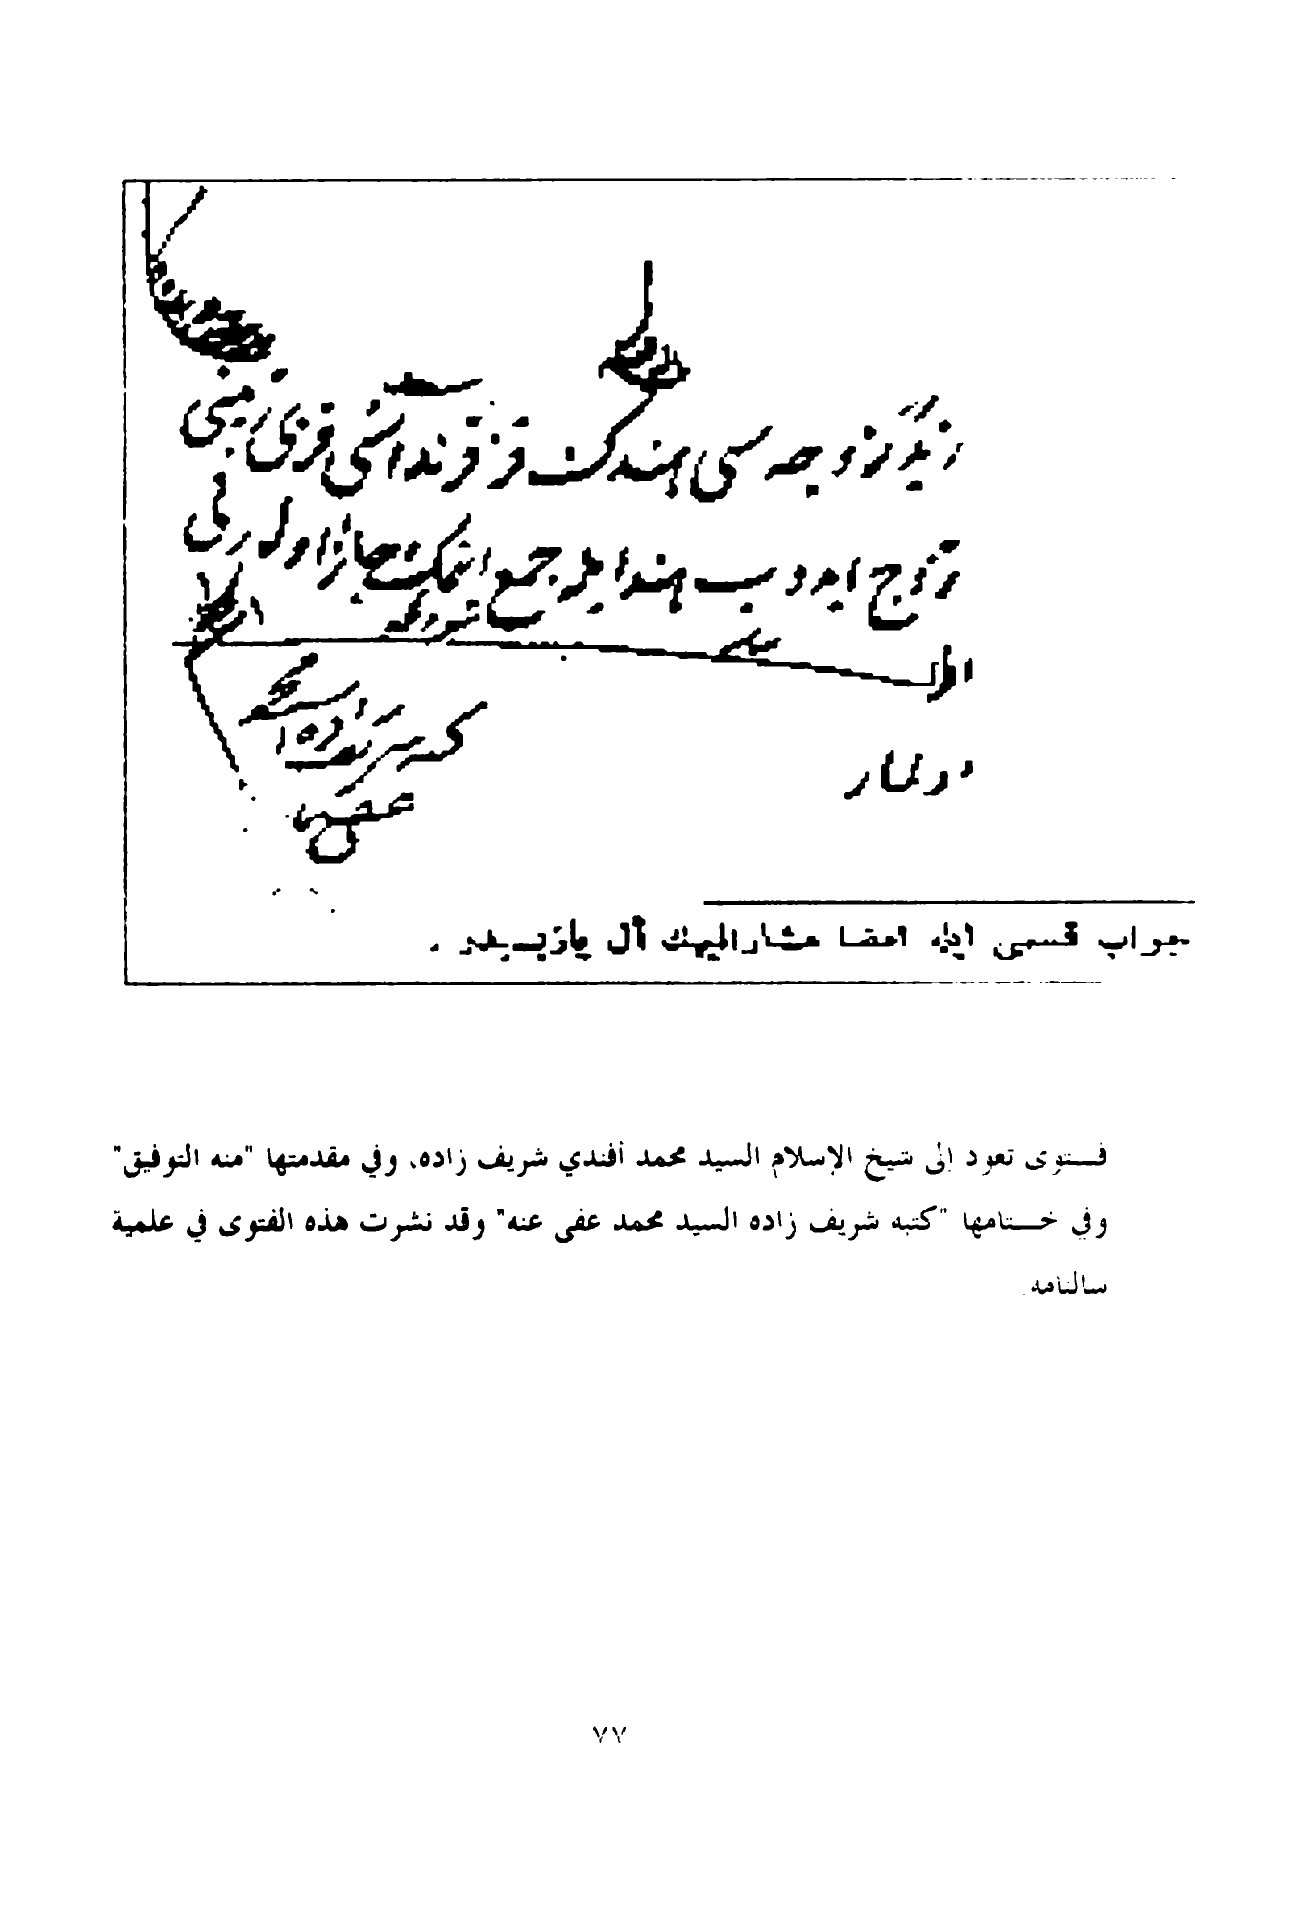 زيد زوجه سى هندك قز قرنداشى قزى زينبى
تزوج ايدوب هندايله جمع ايتمك جائز اولورمى
اولماز
جواب قسمى ايله امضا مشاراليهك ال يازيسيدر .
فــتوى تعود إلى شيخ الإسلام السيد محمد أفندي شريف زاده، وفي مقدمتها "منه التوفيق"
وفي خــتامها "كتبه شريف زاده السيد محمد عفى عنه" وقد نشرت هذه الفتوى في علمية
سالنامه.
٧٧